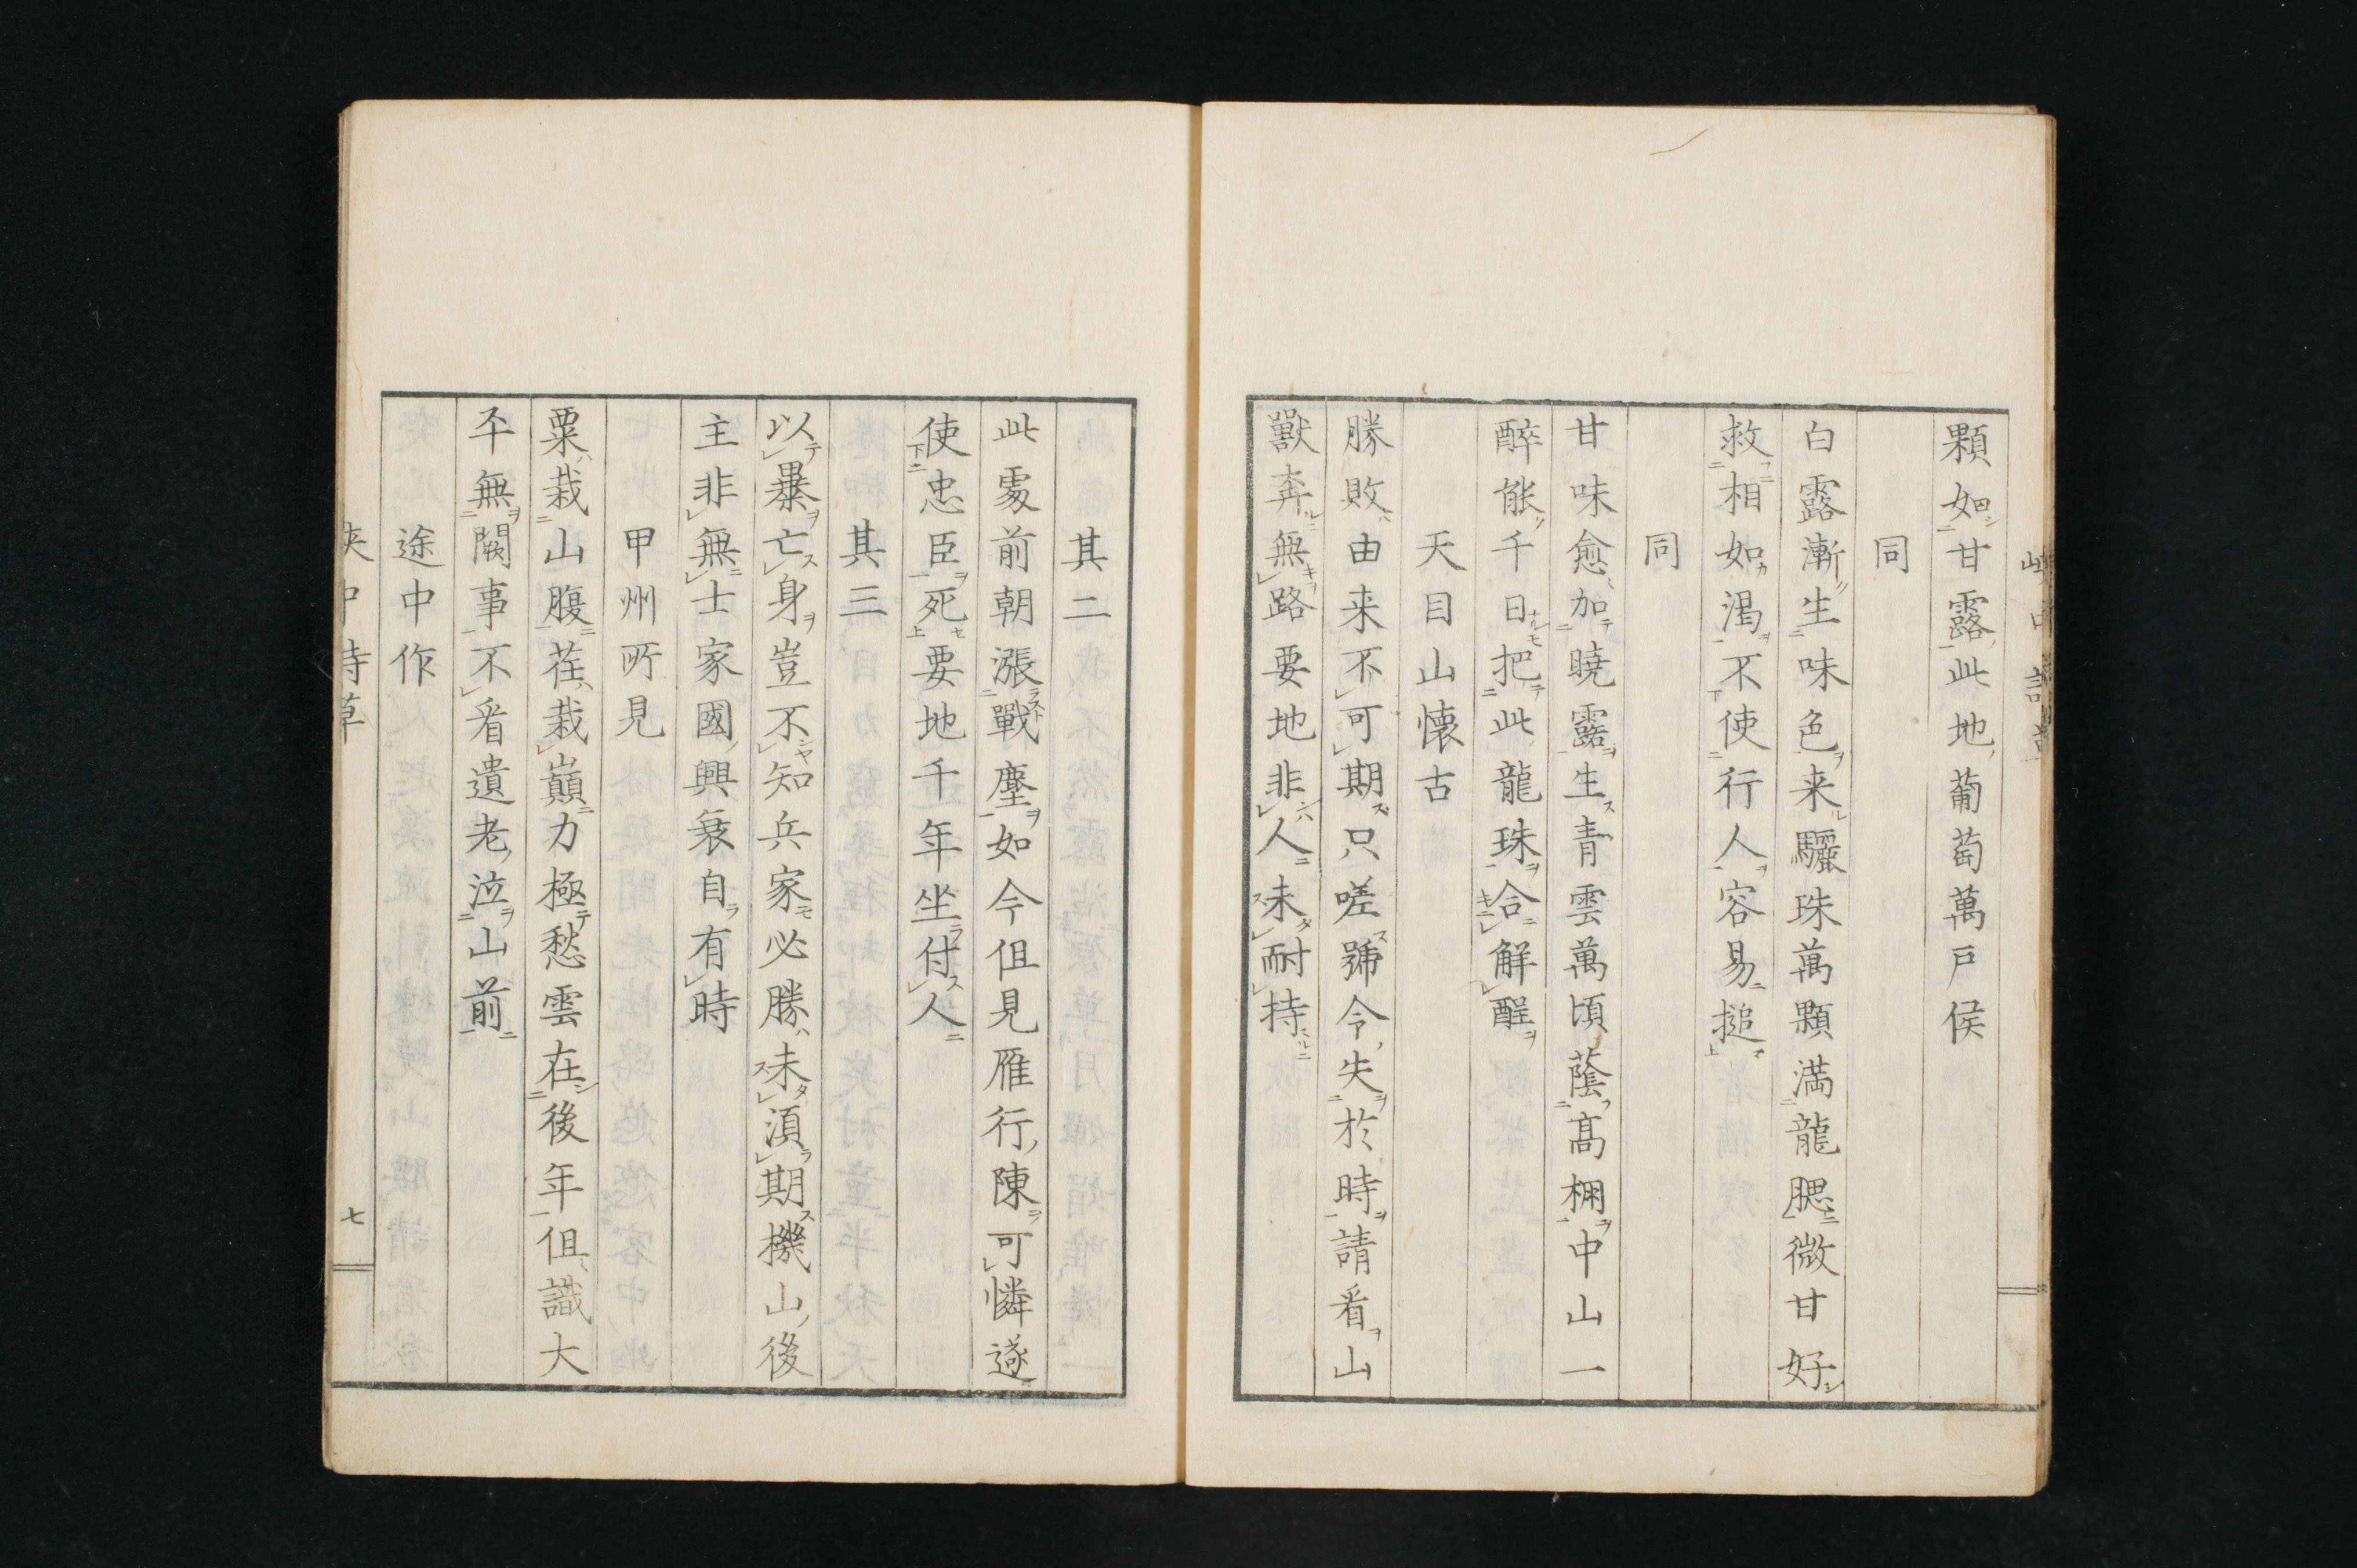 顆如甘露此地葡萄萬戸侯
同
白露漸生味色来驪珠萬顆満龍腮微甘好
救相如渇不使行人容易搥
同
甘味愈加暁露生青雲萬頃蔭髙棚中山一
醉能千日把此龍珠合觧酲
天目山懐古
勝敗由来不可期只嗟號令失於時請看山
獸奔無路要地非人未耐持
其二
此處前朝漲戰塵如今但見雁行陳可憐遂
使忠臣死要地千年坐付人
其三
以暴亡身豈不知兵家必勝未須期機山後
主非無士家國興衰自有時
甲州所見
粟栽山腹荏栽巓力極愁雲在後年但識大
平無闕事不看遺老泣山前
途中作
峡中詩草
七